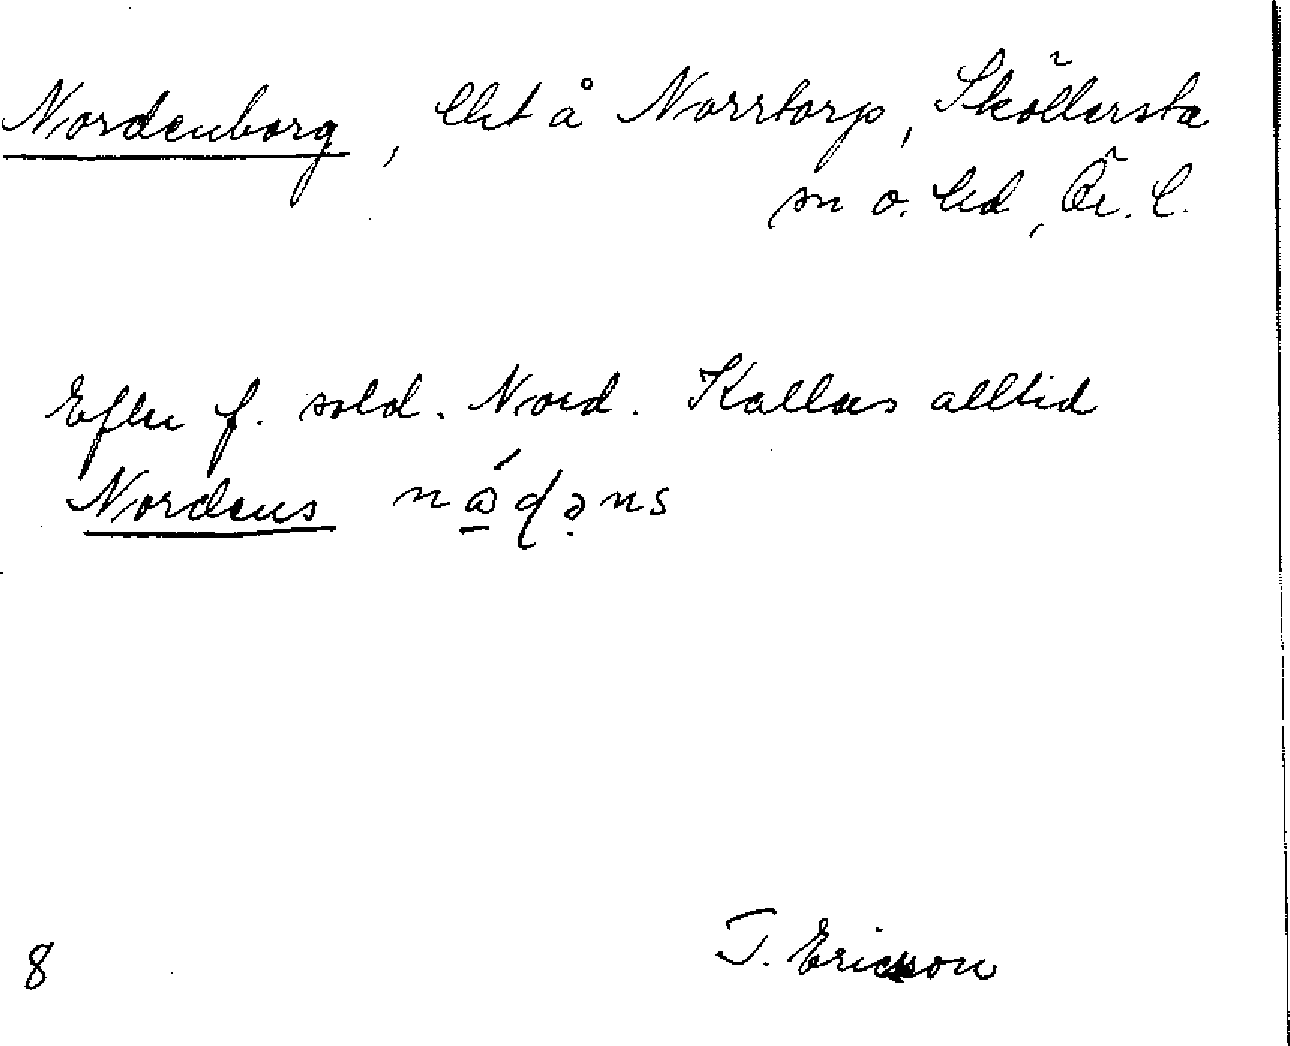 Nordenborg, lht å Norrtorp, Sköllersta
sn o. hd, Ör. l.
Efter f. sold. Nord. Kallas alltid
Nordens
T. Ericsson
8